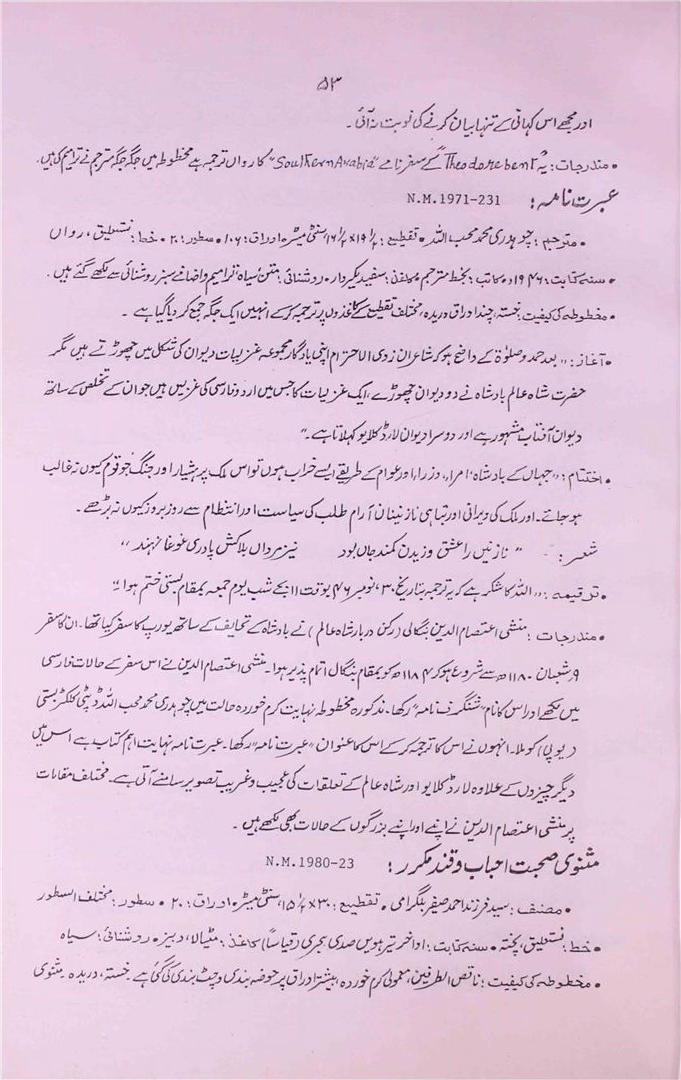 ۵۳
اور مجھے اس کہانی کے تنہا بیان کرنے کی نوبت نہ آئی۔
• مندرجات: یہ Theodorebent کے سفر نامے "Southern Arabia" کا رواں ترجمہ ہے مخطوطہ میں جگہ جگہ مترجم نے ترامیم کی ہیں۔
عبرت نامہ: N.M.1971-231
• مترجم: چوہدری محمد محب اللہ • تقطیع: ۱۹x۱۶ سنٹی میٹر • اوراق: ۱۰۶ • سطور: ۲۰ • خط: نستعلیق، رواں
• سنہ کتابت: ۱۹۴۶ء • کاتب: بخط مترجم • کاغذ: سفید لکیردار • روشنائی: متن سیاہ ترامیم و اضافے سبز روشنائی سے لکھے گئے ہیں۔
• مخطوطہ کی کیفیت: خستہ، چند اوراق دریدہ، مختلف تقطیع کے کاغذوں پر ترجمہ کرکے انہیں ایک جگہ جمع کر دیا گیا ہے۔
• آغاز: "بعد حمد و صلوٰۃ کے واضح ہو کہ شاعران ذوی الاحترام اپنی یادگار مجموعہ غزلیات دیوان کی شکل میں چھوڑتے ہیں مگر
حضرت شاہ عالم بادشاہ نے دو دیوان چھوڑے، ایک غزلیات کا جس میں اردو فارسی کی غزلیں ہیں جو ان کے تخلص کے ساتھ
دیوان آفتاب مشہور ہے اور دوسرا دیوان لارڈ کلایو کہلاتا ہے۔"
• اختتام: "جہاں کے بادشاہ، امراء، وزراء اور عوام کے طریقے ایسے خراب ہوں تو اس ملک پر ہشیار اور جنگ جو قوم کیوں نہ غالب
ہو جائے۔ اور ملک کی ویرانی اور تباہی نازنینان آرام طلب کی سیاست اور انتظام سے روز بروز کیوں نہ بڑھے۔
شعر: "نازنیں را عشق ورزیدن کمند جاں بود نیز مرداں بلاکش پا دری غوغا نہند"
• ترقیمہ: "اللہ کا شکر ہے کہ یہ ترجمہ بتاریخ ۳۰، نومبر ۴۶ بوقت ۱۱ بجے شب یوم جمعہ بمقام بستی ختم ہوا۔"
• مندرجات: منشی اعتصام الدین بنگالی (رکن دربار شاہ عالم) نے بادشاہ کے تحایف کے ساتھ یورپ کا سفر کیا تھا۔ ان کا سفر
۹، شعبان ۱۱۸۰ھ سے شروع ہو کر ۱۱۸۴ھ کو بمقام بنگال اتمام پذیر ہوا۔ منشی اعتصام الدین نے اس سفر کے حالات فارسی
میں لکھے اور اس کا نام "شنگرف نامہ" رکھا۔ مذکورہ مخطوطہ نہایت کرم خوردہ حالت میں چوہدری محمد محب اللہ ڈپٹی کلکٹر بستی
(یوپی) کو ملا۔ انہوں نے اس کا ترجمہ کرکے اس کا عنوان "عبرت نامہ" رکھا۔ عبرت نامہ نہایت اہم کتاب ہے اس میں
دیگر چیزوں کے علاوہ لارڈ کلایو اور شاہ عالم کے تعلقات کی عجیب و غریب تصویر سامنے آتی ہے۔ مختلف مقامات
پر منشی اعتصام الدین نے اپنے اور اپنے بزرگوں کے حالات بھی لکھے ہیں۔
مثنوی صحبت احباب و قند مکرر: N.M.1980-23
• مصنف: سید فرزند احمد صفیر بلگرامی • تقطیع: ۳۰x۱۵ سنٹی میٹر • اوراق: ۲۰ • سطور: مختلف السطور
• خط: نستعلیق، پختہ • سنہ کتابت: اواخر تیرہویں صدی ہجری (قیاساً) کاغذ: مٹیالا، دبیز • روشنائی: سیاہ
• مخطوطہ کی کیفیت: ناقص الطرفین، معمولی کرم خوردہ، بیشتر اوراق پر حوضہ بندی و چٹ بندی کی گئی ہے۔ خستہ، دریدہ۔ مثنوی